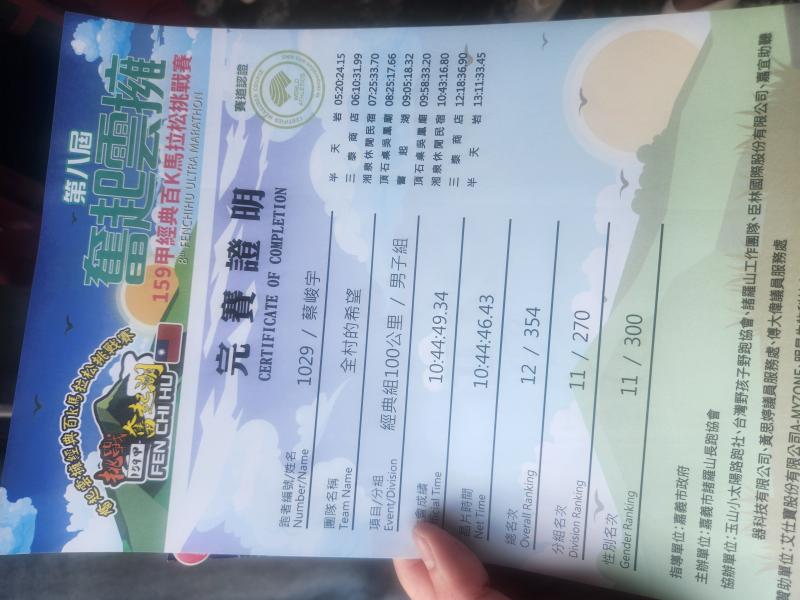 第八屆
奮起雲擁
159甲經典百K馬拉松挑戰賽
8th FENCHIHU ULTRA MARATHON
奮起雲擁經典百K馬拉松挑戰賽
挑戰
159甲
奮起湖
FEN CHI HU
完賽證明
CERTIFICATE OF COMPLETION
賽道認證
WORLD ATHLETICS
跑者編號/姓名 1029 / 蔡峻宇
Number/Name
團隊名稱 全村的希望
Team Name
項目/分組 經典組100公里 / 男子組
Event/Division
會成績 10:44:49.34
Time
晶片時間 10:44:46.43
Net Time
總名次 12 / 354
Overall Ranking
分組名次 11 / 270
Division Ranking
性別名次 11 / 300
Gender Ranking
半天岩 05:20:24.15
三泰商店 06:10:31.99
湘泉休閒民宿 07:25:33.70
頂石桌吳鳳廟 08:25:17.66
奮起湖 09:05:18.32
頂石桌吳鳳廟 09:58:33.20
湘泉休閒民宿 10:43:16.80
三泰商店 12:18:36.90
半天岩 13:11:33.45
指導單位:嘉義市政府
主辦單位:嘉義市諸羅山長跑協會
協辦單位:玉山小太陽路跑社、台灣野孩子野跑協會、諸羅山工作團隊、臣林國際股份有限公司、嘉宜助聽
器科技有限公司、黃思婷議員服務處、傅大偉議員服務處
贊助單位:艾仕寶股份有限公司A-MYZONE、